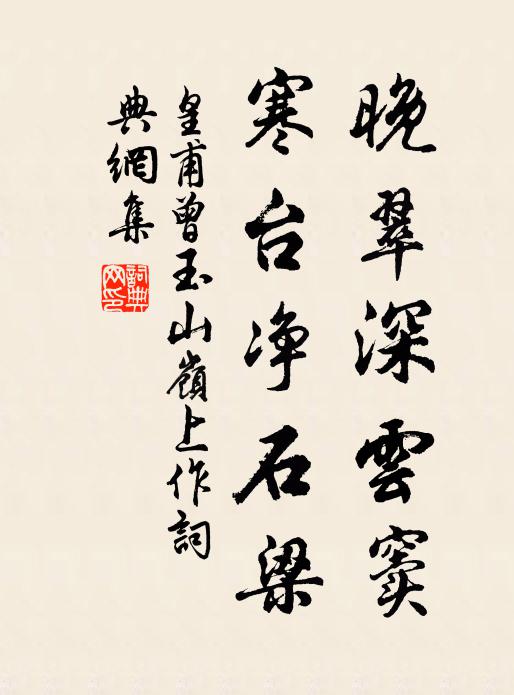 晚翠深雲竇
寒台净石梁
皇甫曾玉山嶺上作詞
典網集
詞典网印